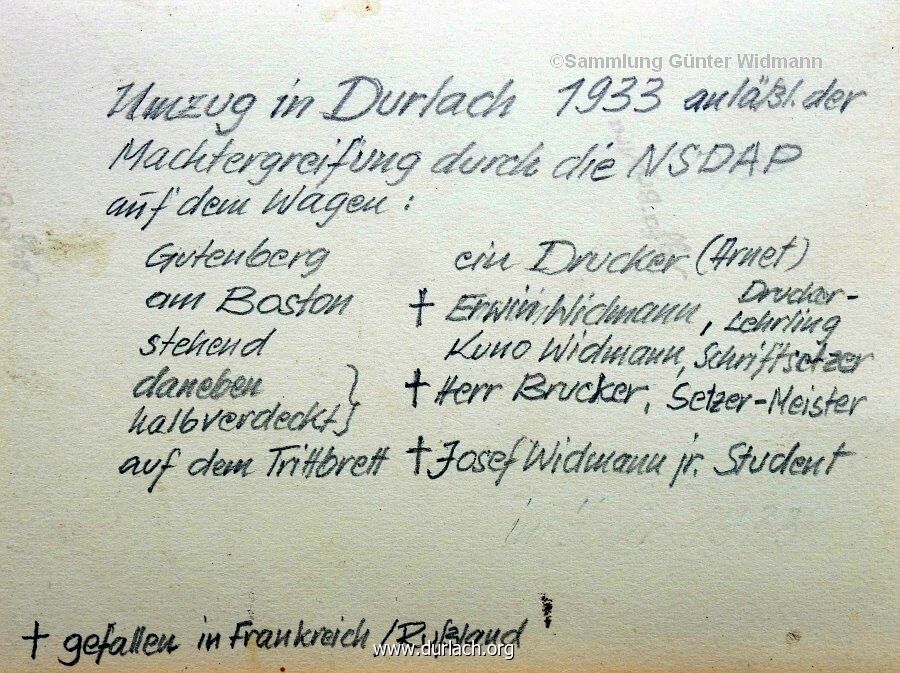 ©Sammlung Günter Widmann
Umzug in Durlach 1933 anläßl. der
Machtergreifung durch die NSDAP
auf dem Wagen :
Gutenberg ein Drucker (Arnet)
am Boston † Erwin Widmann, Drucker-Lehrling
stehend Kuno Widmann, Schriftsetzer
daneben } † Herr Brucker, Setzer-Meister
halbverdeckt
auf dem Trittbrett † Josef Widmann jr. Student
† gefallen in Frankreich / Rußland
www.durlach.org